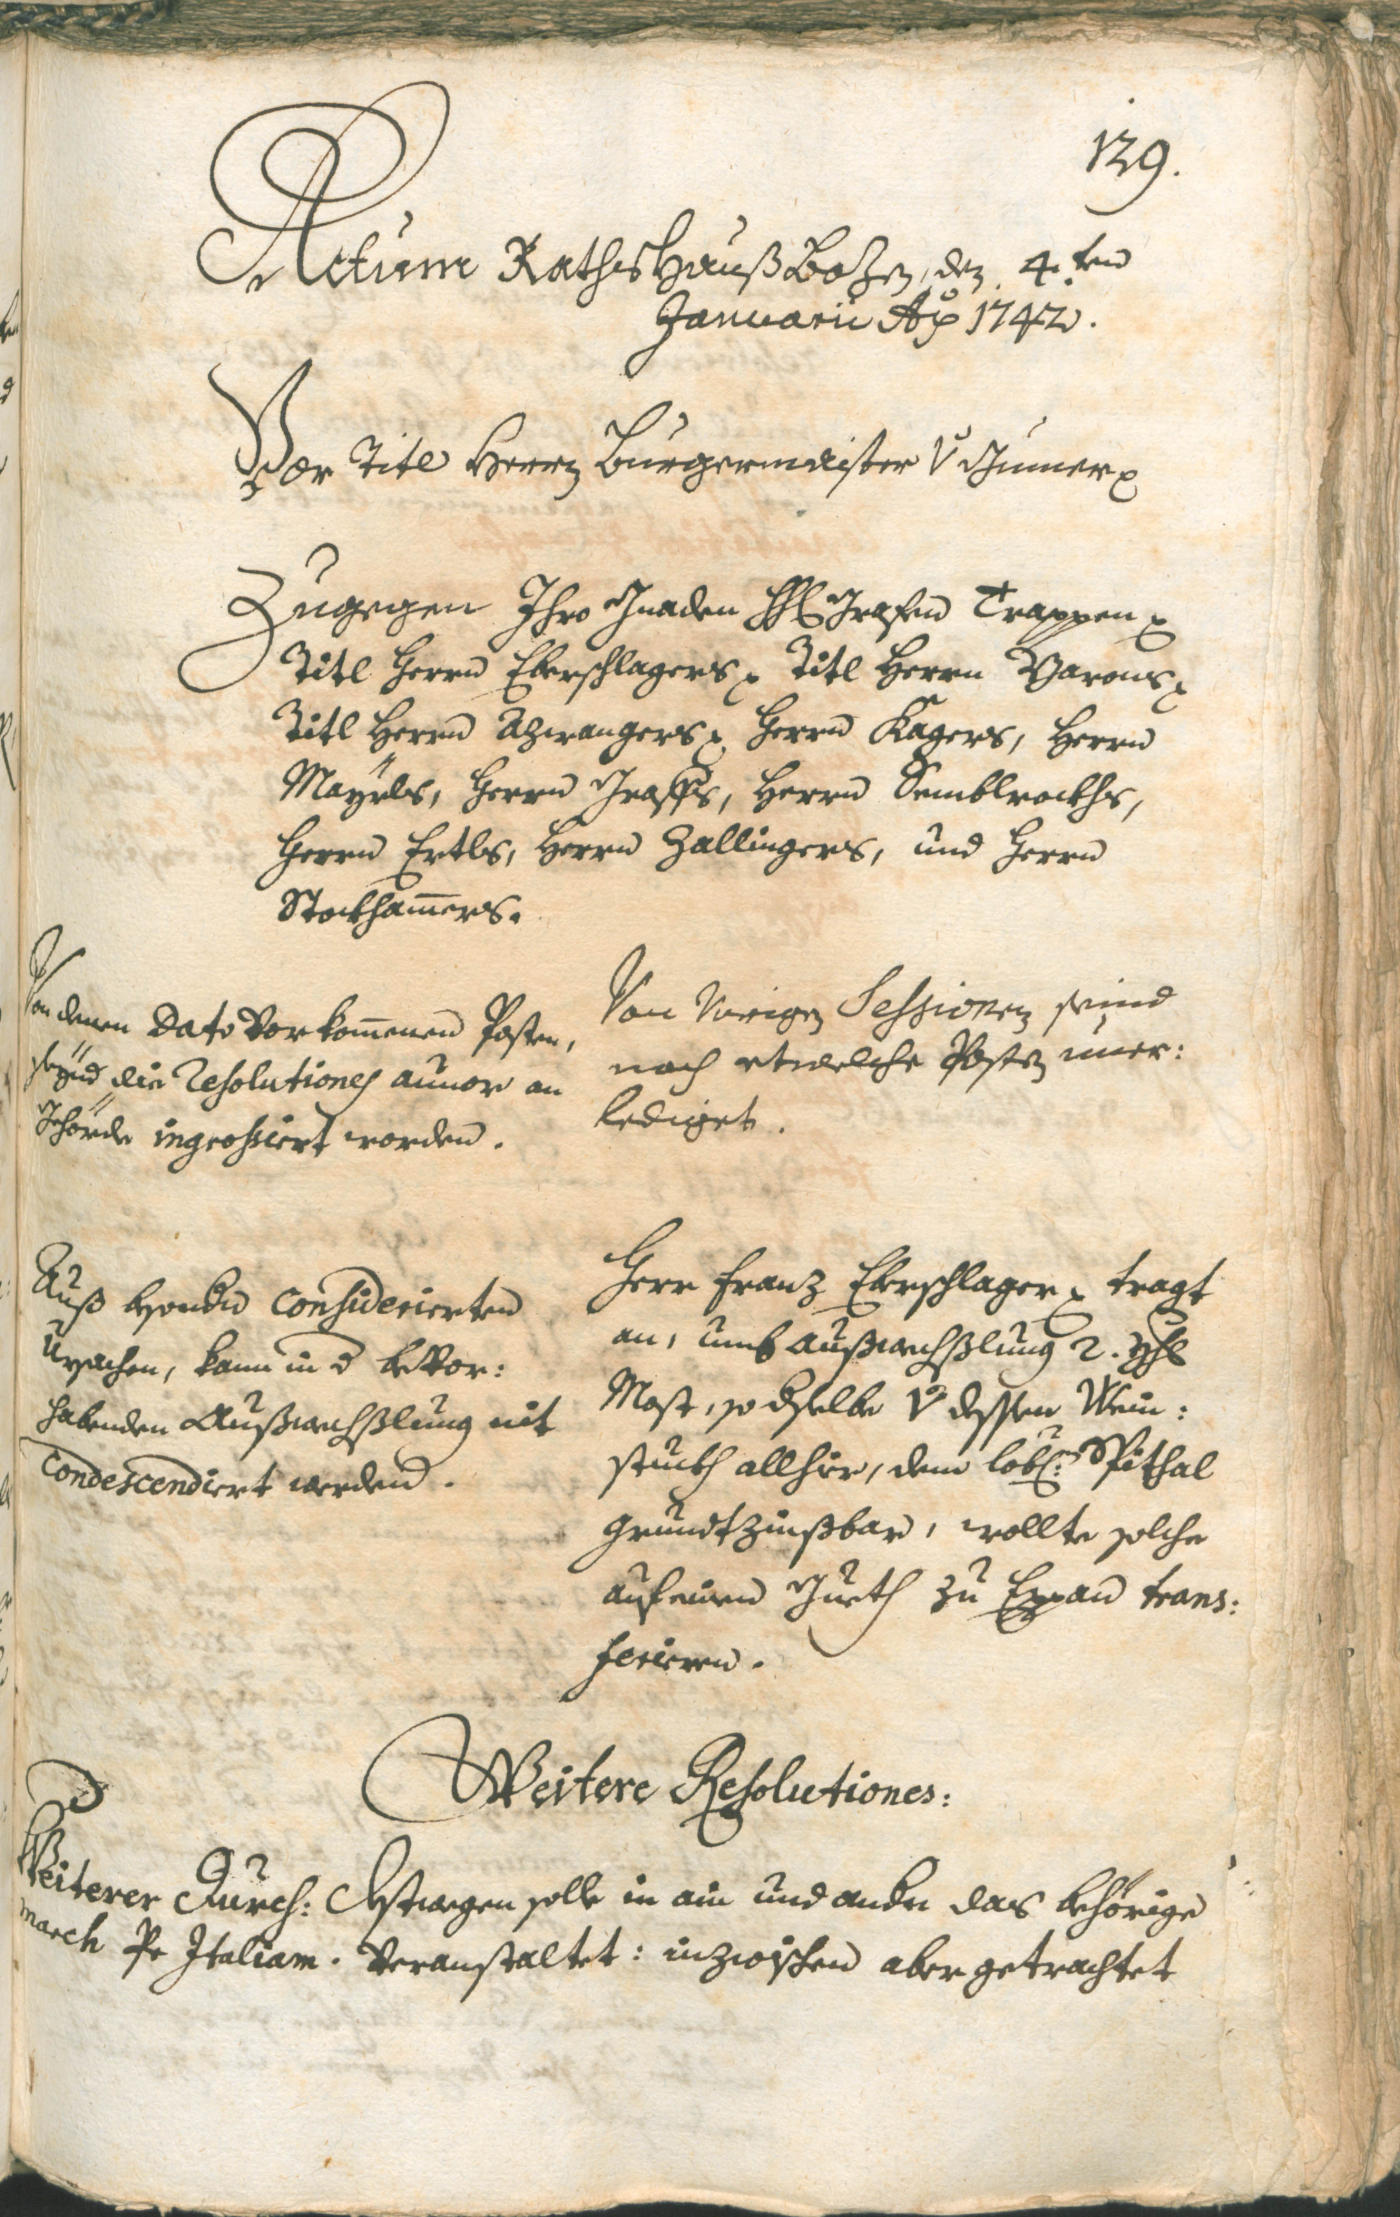 129.
Actum Rathshauß Bozen, den 4.ten
Januarii Ao 1742.
Vor Titl Herrn Burgermaister V Gumer
Zugegen Ihro Gnaden Grafen Trappen
Titl Herrn Eberschlagers Titl Herrn Varons
Titl Herrn Azwangers Herrn Kagers, Herrn
Mayrls, Herrn Graffs, Herrn Semblrockhs,
Herrn Ertls, Herrn Zallingers, und Herrn
Stockhamers.
Von denen Dato Vorkomenen Posten,
seynd die Resolutiones anvor an
Gehörde ingrossiert worden.
Von Vorigen Sessionen seind
noch etwelche Posten uner:
lediget.
Auß besondern considerierten
Ursachen, kann in d bevor:
habenden Außwechßlung nit
condescendiert werden.
Herr Franz Eberschlager tragt
an, umb Außwechßlung 2. Yhr
Most, so dselbe V dessen Wein:
stuckh allhier, dem lobl: Spithal
grundtzinßbar, wollte solche
auf einen Gueth zu Eppan trans:
ferieren.
Weitere Resolutiones:
Weiterer Durch:
march Pr Italiam.
Destwegen solle in ain und andern das behörige
Veranstaltet: inzwischen aber getrachtet